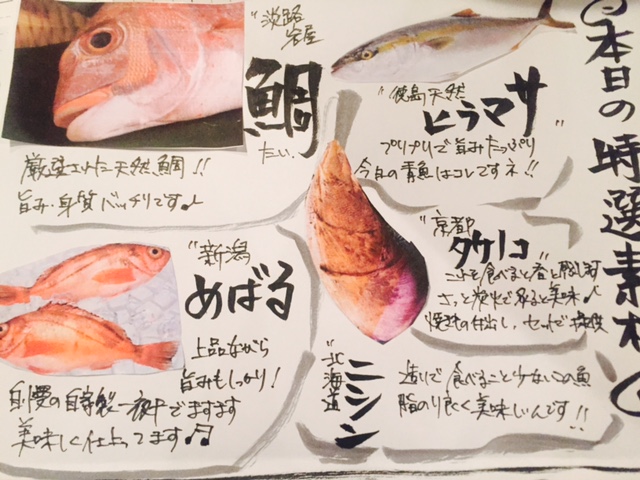 本日の特選素材
徳島天然
ヒラマサ
プリプリで旨みたっぷり
今日の青魚はコレですネ!!
淡路
岩屋
鯛
たい
厳選された天然鯛!!
旨み・身質バッチリです♪
京都
タケノコ
これを食べると春と
さっと炭火で炙ると美味♪
新潟
めばる
上品ながら
旨みもしっかり!
自慢の自家製一夜干でますます
美味しく仕上ってます♪
北海道
ニシン
造りで食べること少ないこの魚
脂のり良く美味しいんです!!